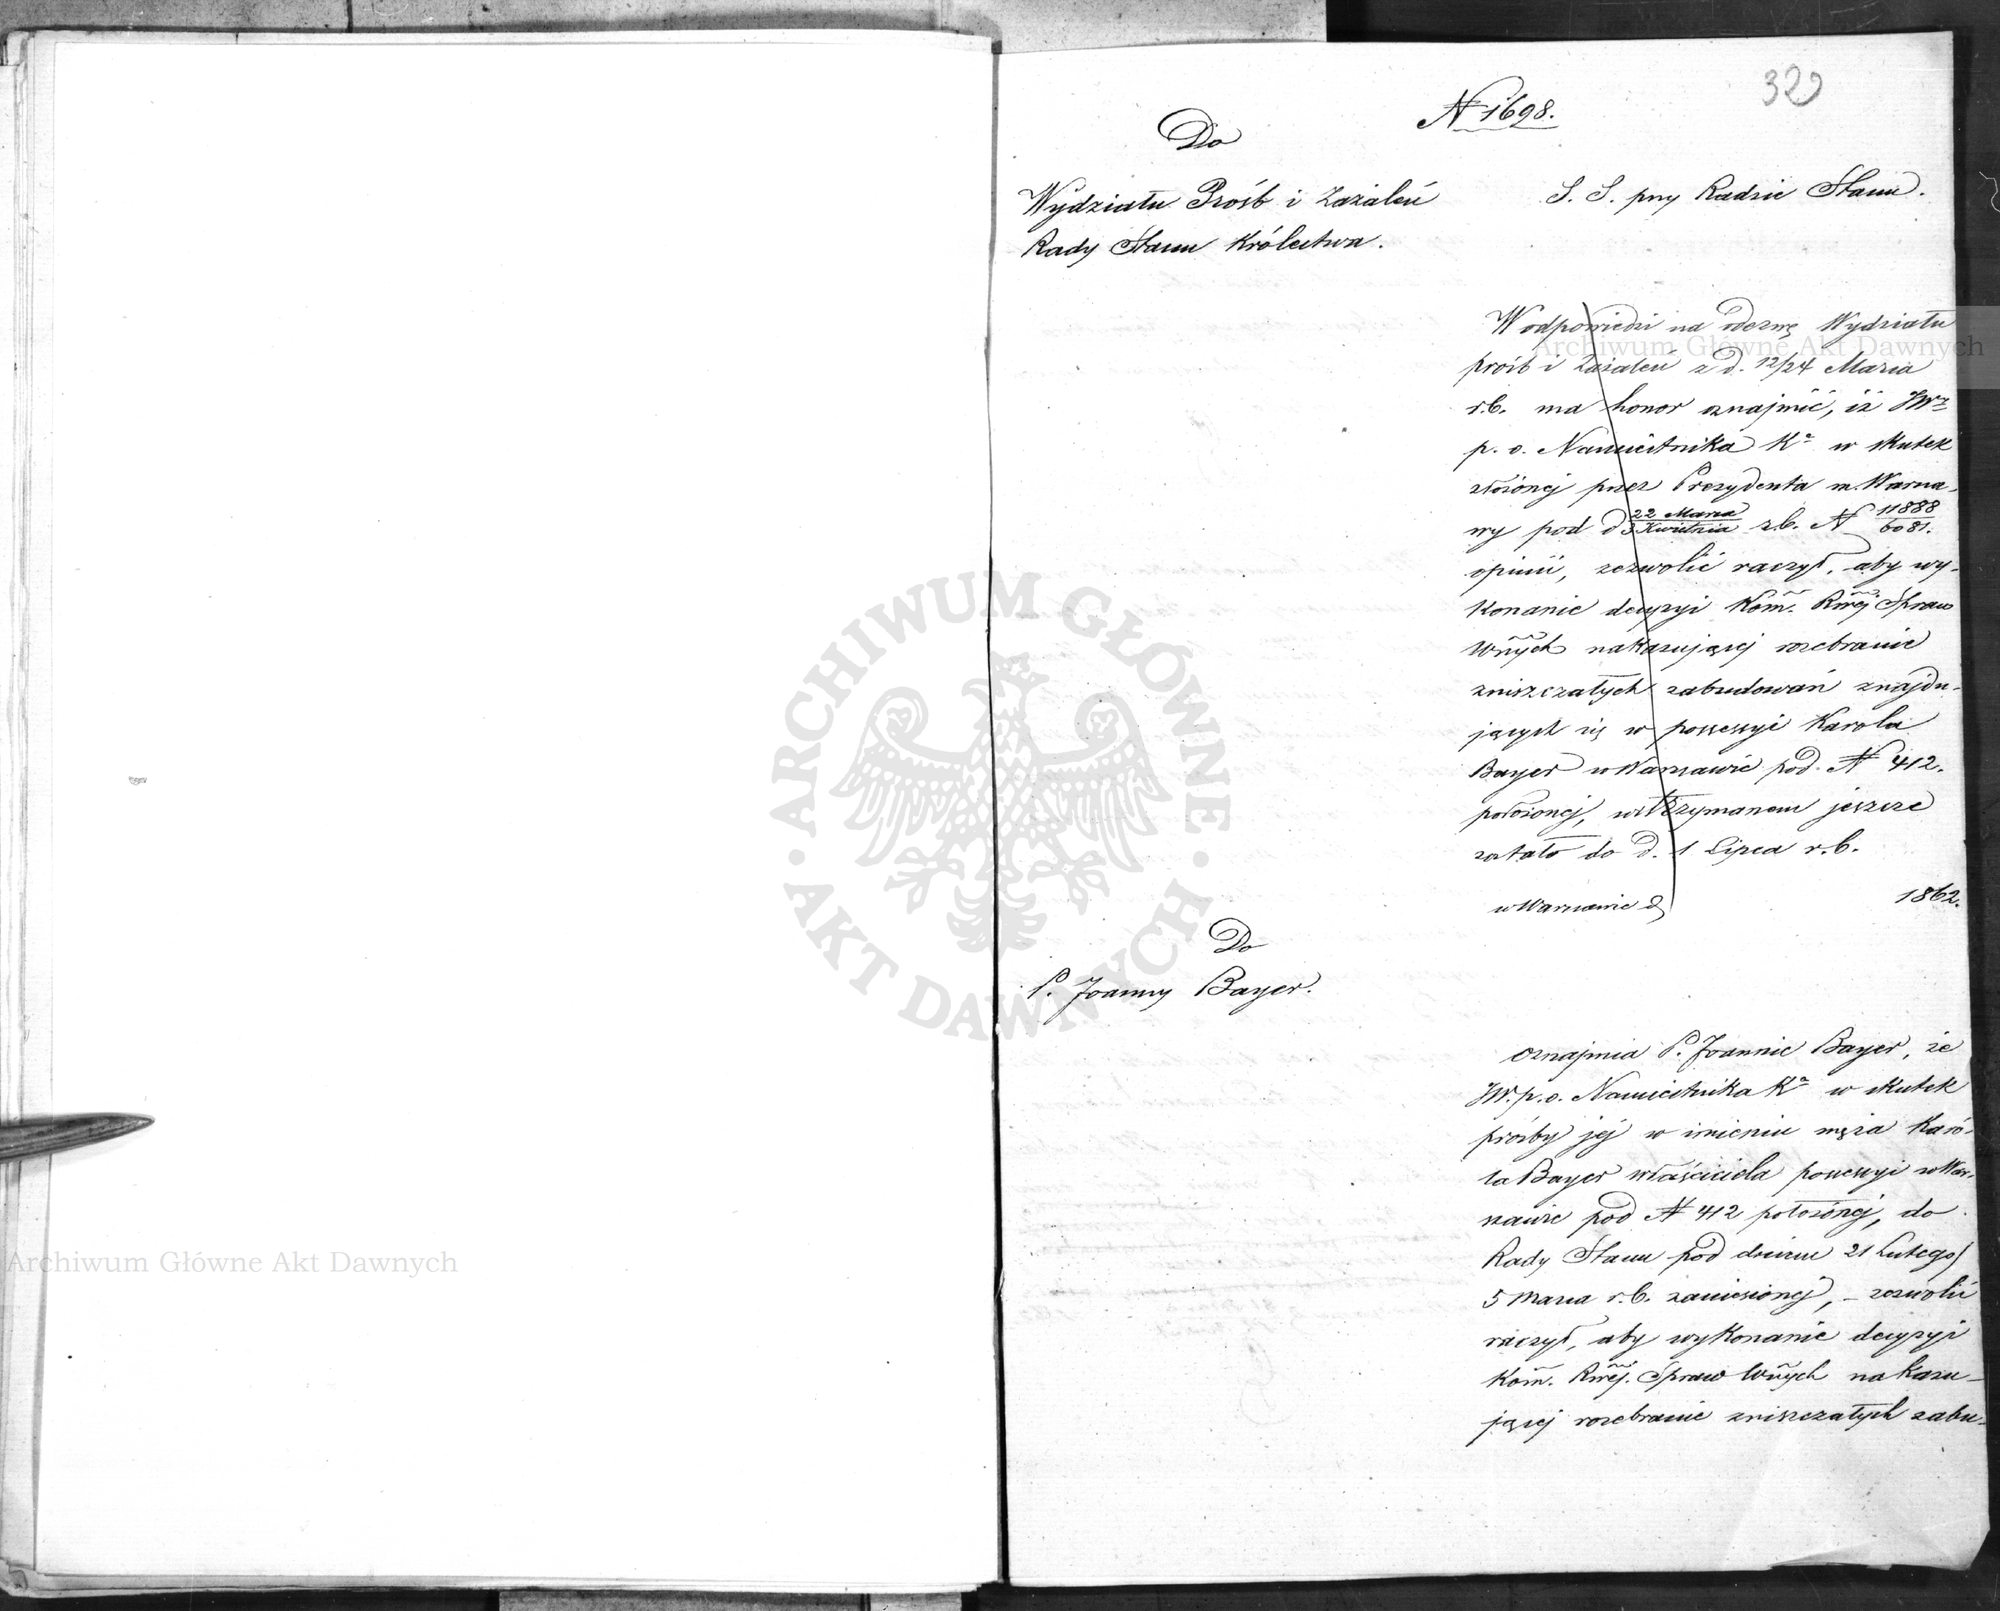 320
N 1698.
Do
Wydziału Próśb i Zażaleń
Rady Stanu Królestwa.
S. S. przy Radzie Stanu.
W odpowiedzi na odezwę Wydziału
próśb i Zażaleń z d. 12/24 Marca
r.b. ma honor oznajmić, iż JW
p. o. Namiestnika Kª w skutek
złożonej przez Prezydenta m. Warsza-
wy pod d 22 Marca / 3 Kwietnia r.b. N 11888/6081.
opinii, zezwolić raczył, aby wy-
konanie decyzyi Kom. Rwéj Spraw
Wnych nakazującej rozebranie
zniszczałych zabudowań znajdu-
jących się w possessyi Karola
Bayer w Warszawie pod N 412.
położonej, wstrzymanem jeszcze
zostało do d. 1 Lipca r.b.
w Warszawie d 1862.
Do
P. Joanny Bayer.
Oznajmia P. Joannie Bayer, że
JW. p. o. Namiestnika Kª w skutek
prośby jéj w imieniu męża Karo-
la Bayer właściciela possessyi w War-
szawie pod N 412 położonéj, do
Rady Stanu pod dniem 21 Lutego/
5 Marca r.b. zaniesionéj, – zezwolić
raczył, aby wykonanie decyzyi
Kom. Rwéj. Spraw Wnych nakazu-
jącej rozebranie zniszczałych zabu-
ARCHIWUM GŁÓWNE AKT DAWNYCH
Archiwum Główne Akt Dawnych
Archiwum Główne Akt Dawnych